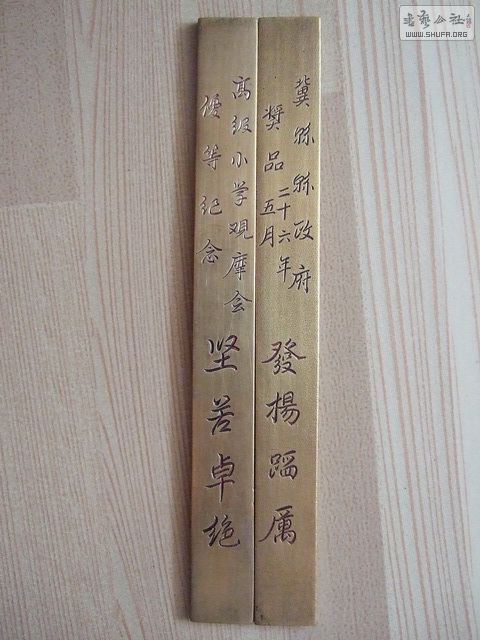 冀縣縣政府
獎品
二十六年
五月
發揚蹈厲
高级小学观摩会
優等纪念
坚苦卓绝
書藝公社
WWW.SHUFA.ORG